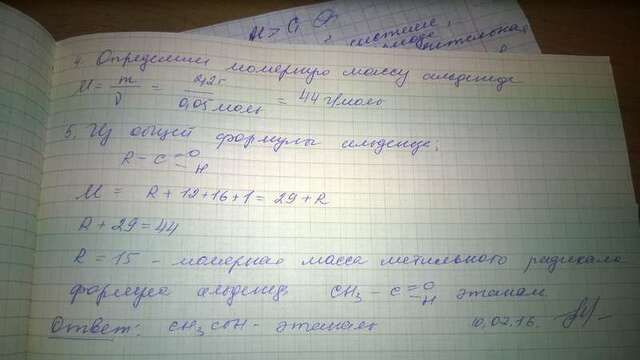 М > С
системе,
4. Определим молярную массу альдегида
M = m/ν = 2,2г/0,05 моль = 44 г/моль
5. Из общей формулы альдегида:
R - C = O - H
M = R + 12 + 16 + 1 = 29 + R
R + 29 = 44
R = 15 - молярная масса метильного радикала
формула альдегида CH3 - C = O - H этаналь
Ответ: CH3COH - этаналь 10.02.16.